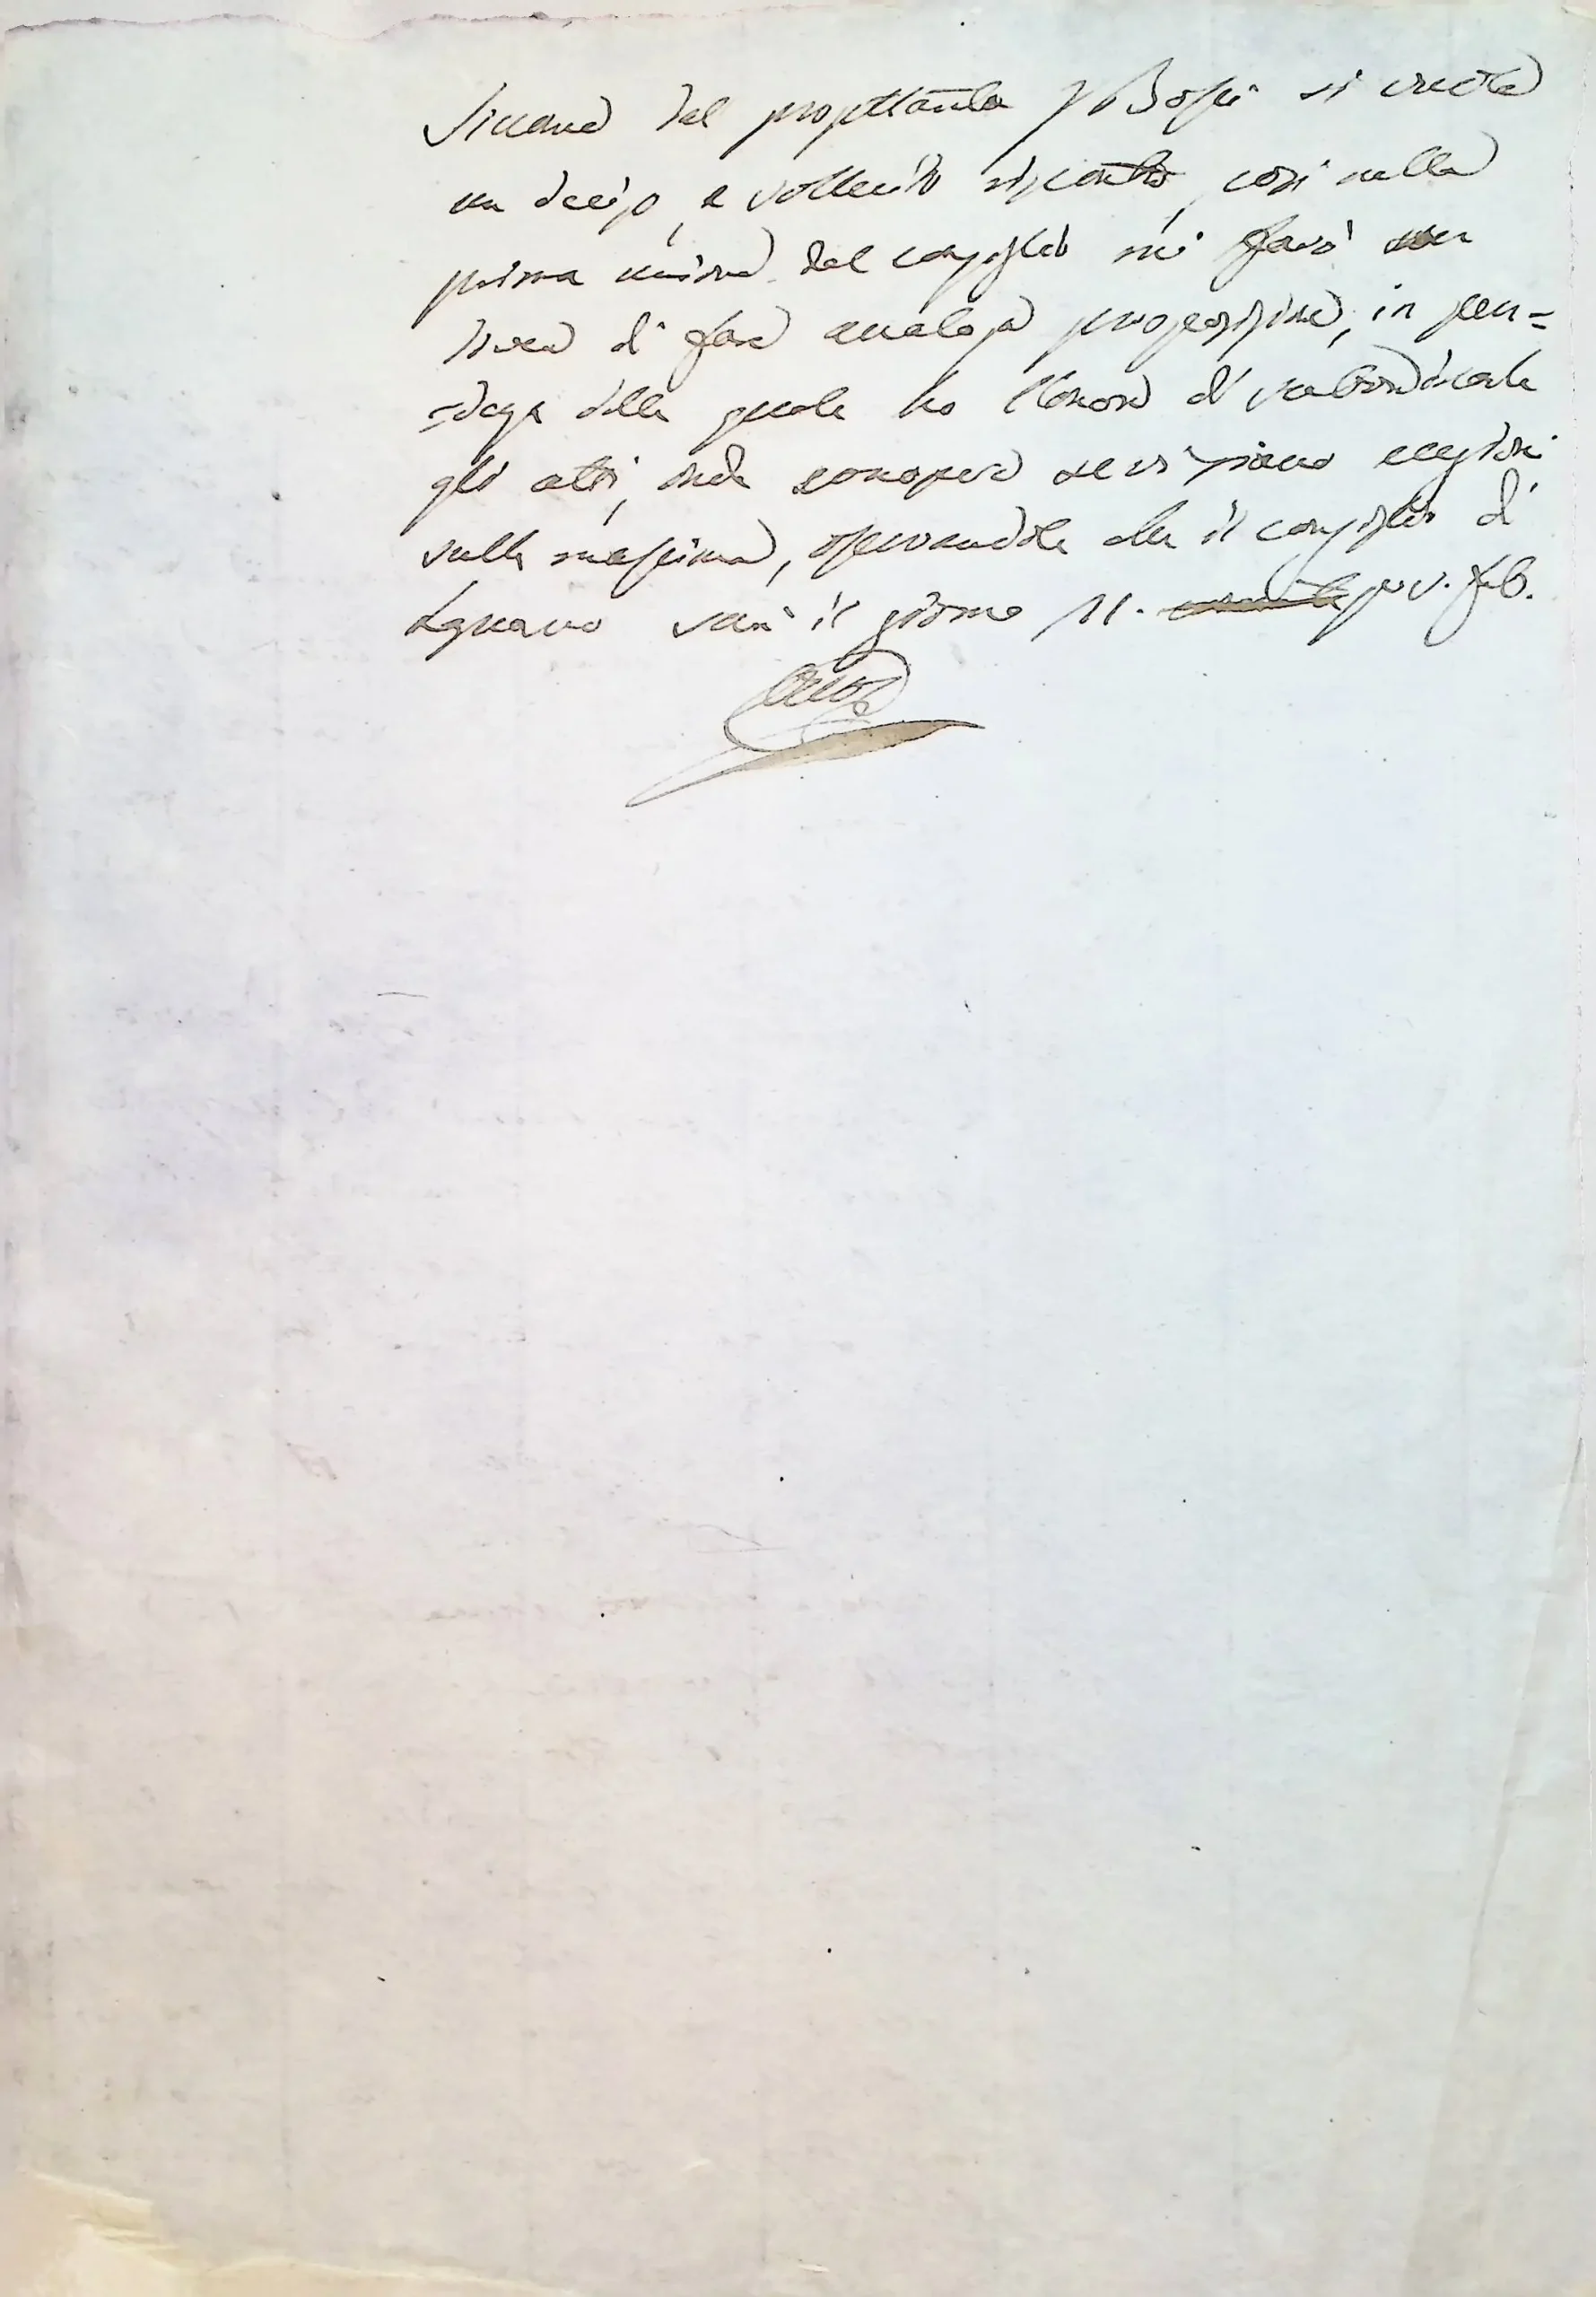 Siccome dal progettante S. Bossi si eccita
un deciso, e sollecito riscontro, così nella
prima unione del consiglio mi farò
di fare analoga proposizione, in pen=
=denza della quale ho l'onore di subordinarle
gli atti, onde conoscere se vi siano eccezioni
sulla massima, osservandole che il consiglio di
Legnano sarà il giorno 11. p. v. feb.